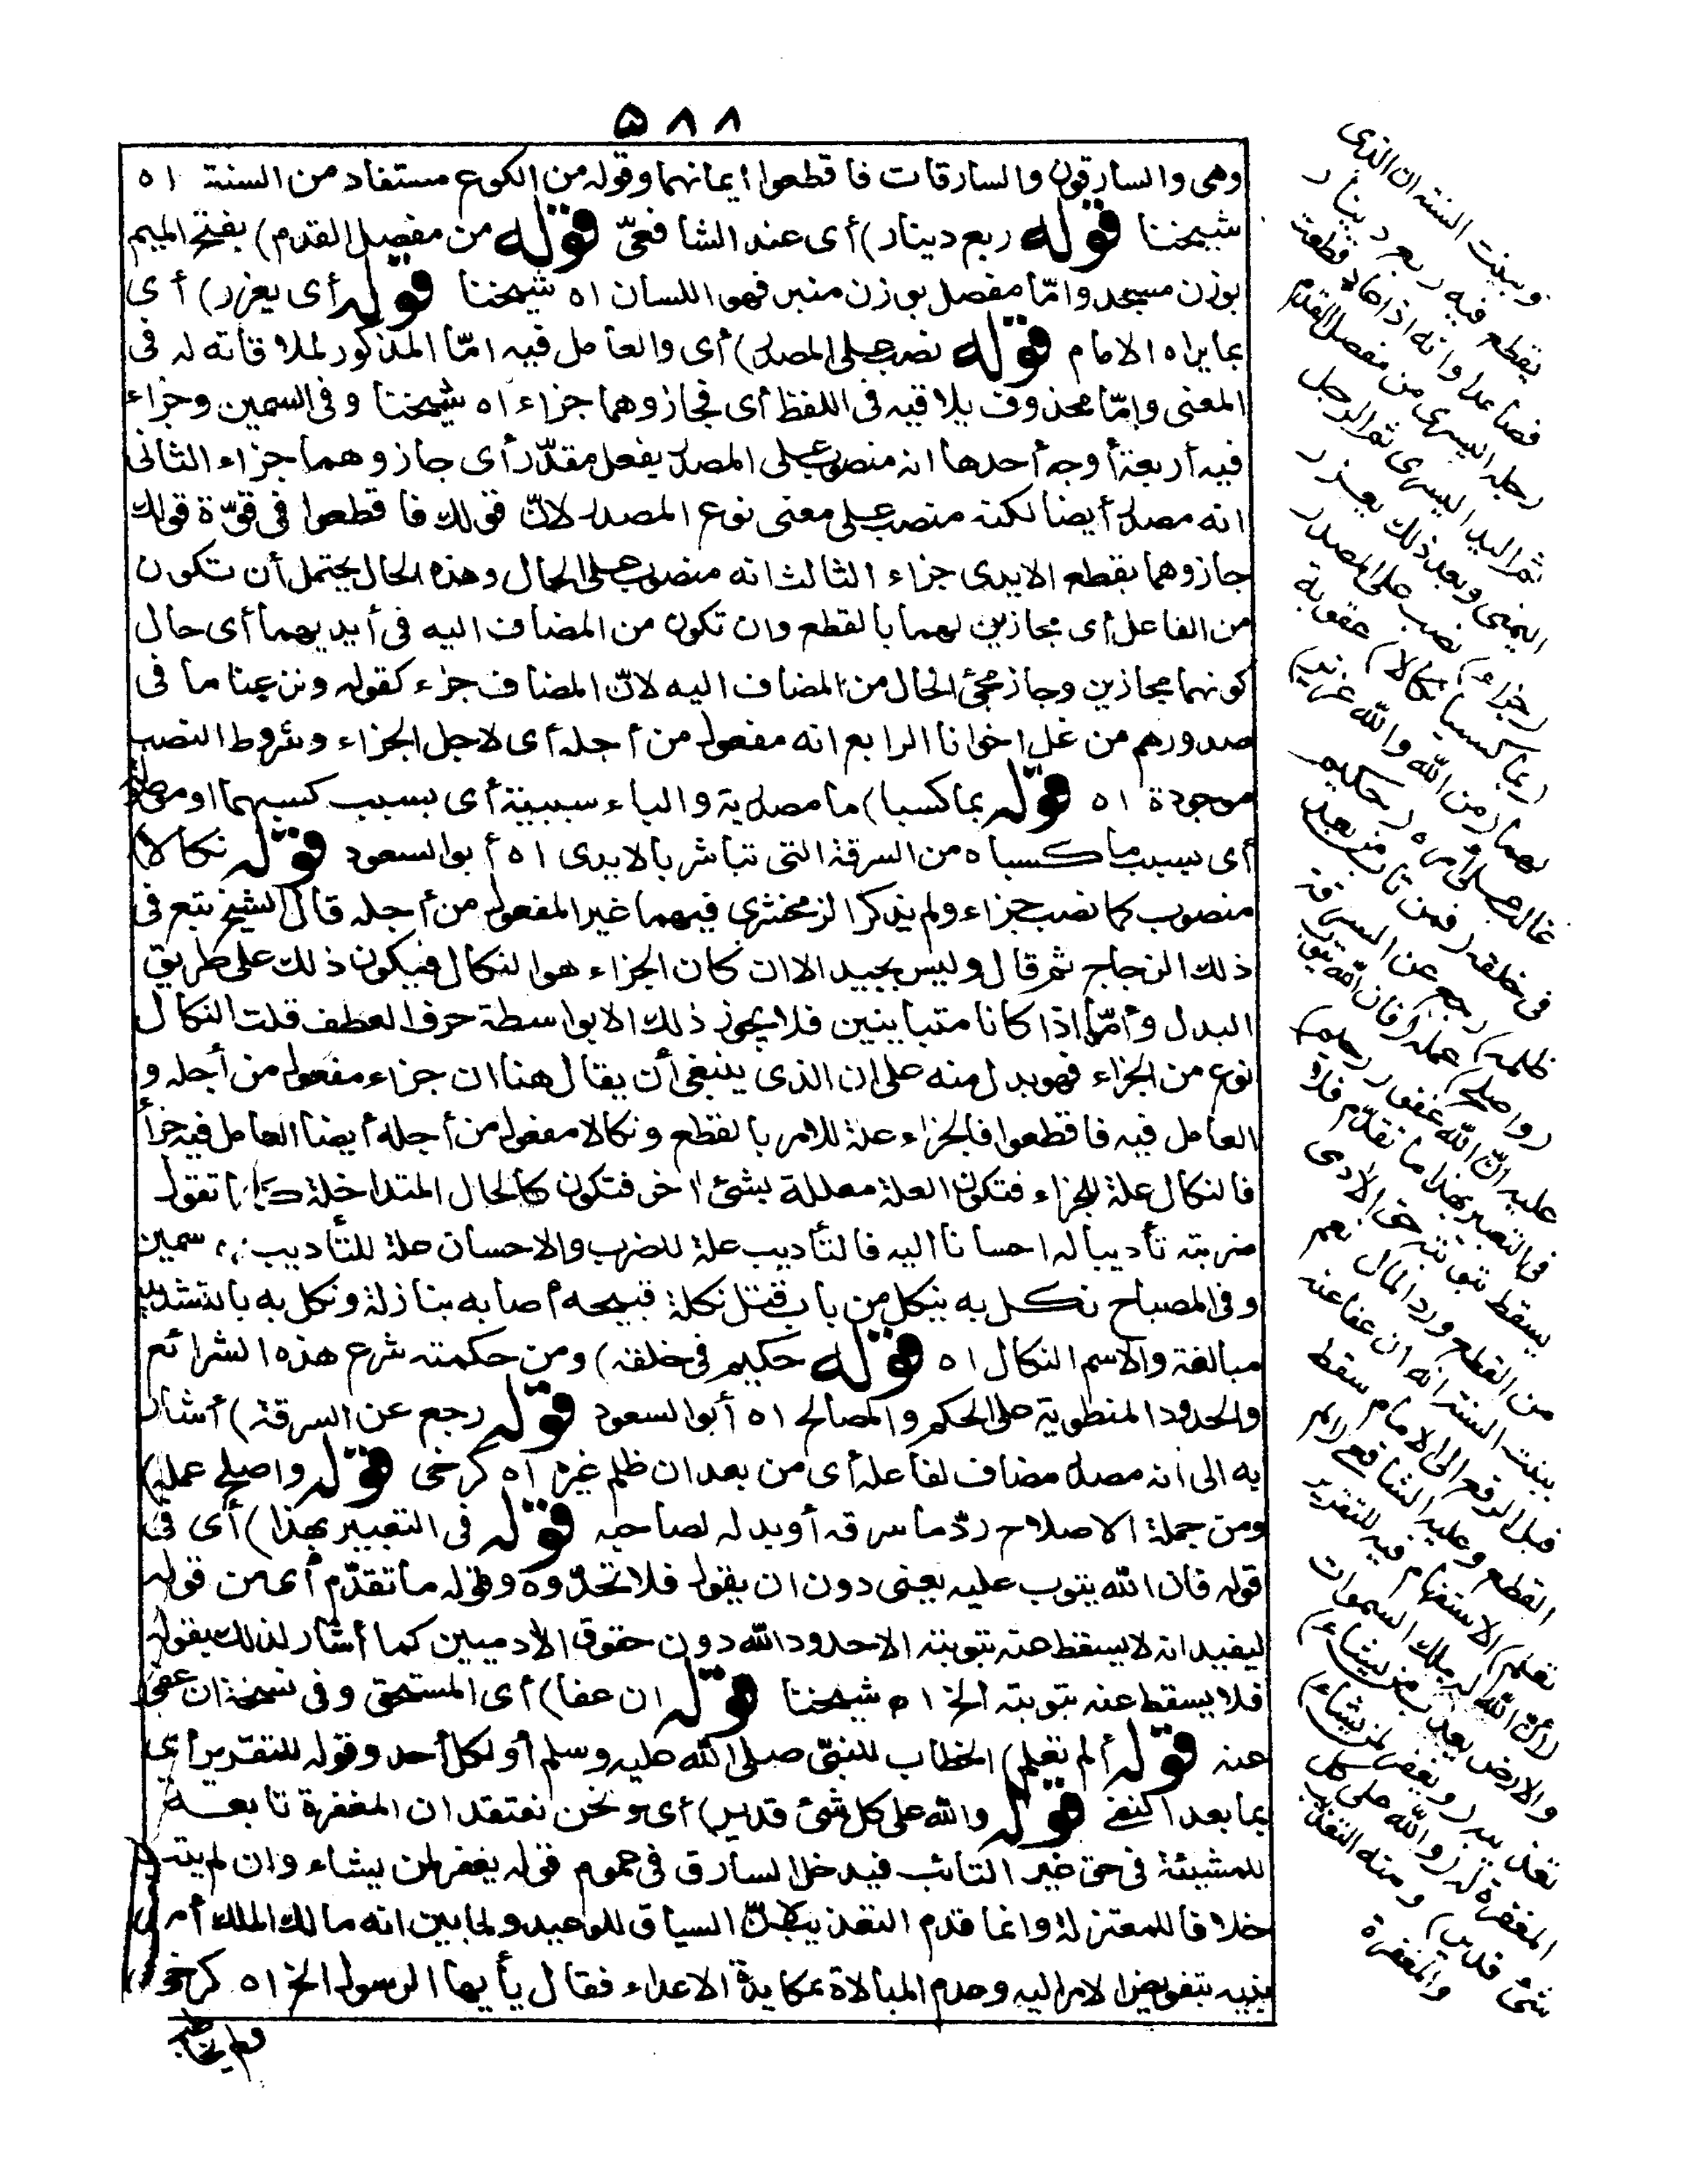 ٥٨٨
وهى والسارقون والسارقات فاقطعوا ايمانهما وقوله من الكوع مستفاد من السنة اه
شيخنا قوله ربع دينار) أى عند الشافعىّ قوله من مفصل القدم) بفتح الميم
بوزن مسجد وامّا مفصل بوزن منبر فهو اللسان اه شيخنا قوله أى يعزر) أى
بما يراه الامام قوله نصب على المصدر) أى والعامل فيه امّا المذكور لملاقاته له فى
المعنى وامّا محذوف يلاقيه فى اللفظ أى فجازوهما جزاء اه شيخنا وفى السمين وجزاء
فيه أربعة أوجه أحدها انه منصوب على المصدر بفعل مقدّر أى جازوهما جزاء الثانى
انه مصدر أيضا لكنه منصب على معنى نوع المصدر لانّ قولك فاقطعوا فى قوّة قولك
جازوهما بقطع الايدى جزاء الثالث انه منصوب على الحال وهذه الحال يحتمل أن تكون
من الفاعل أى مجازين لهما بالقطع وان تكون من المضاف اليه فى أيديهما أى حال
كونهما مجازين وجاز مجئ الحال من المضاف اليه لانّ المضاف جزء كقوله ونزعنا ما فى
صدورهم من غل اخوانا الرابع انه مفعول من أجله أى لاجل الجزاء وشروط النصب
موجودة اه قوله بما كسبا) ما مصدرية والباء سببية أى بسبب كسبهما او موصولة
أى بسبب ما كسباه من السرقة التى تباشر بالايدى اه أبو السعود قوله نكالا)
منصوب كما نصب جزاء ولم يذكر الزمخشرى فيهما غير المفعول من أجله قال الشيخ تبع فى
ذلك الزجاج ثم قال وليس بجيد الا ان كان الجزاء هو النكال فيكون ذلك على طريق
البدل وأمّا اذا كانا متباينين فلا يجوز ذلك الا بواسطة حرف العطف قلت النكال
نوع من الجزاء فهو بدل منه على ان الذى ينبغى أن يقال هنا ان جزاء مفعول من أجله و
العامل فيه فاقطعوا فالجزاء علة للامر بالقطع ونكالا مفعول من أجله أيضا العامل فيه جزأ
فالنكال علة للجزاء فتكون العلة معللة بشئ اخر فتكون كالحال المتداخلة كما تقول
ضربته تأديبا له احسانا اليه فالتأديب علة للضرب والاحسان علة للتأديب اه سمين
وفى المصباح نكل به ينكل من باب قتل نكلة قبيحه أصابه بنازلة ونكل به بالتشديد
مبالغة والاسم النكال اه قوله حكيم فى خلقه) ومن حكمته شرع هذه الشرائع
والحدود المنطوية على الحكم والمصالح اه أبو السعود قوله رجع عن السرقة) أشار
به الى انه مصدر مضاف لفاعله أى من بعد ان ظلم غيره اه كرخى قوله واصلح عمله)
ومن جملة الاصلاح ردّ ما سرقه أو بدله لصاحبه قوله فى التعبير بهذا) أى فى
قوله فان الله يتوب عليه يعنى دون ان يقول فلا تحدّوه وقوله ما تقدّم أى من قوله
ليفيد انه لا يسقط عنه بتوبته الا حدود الله دون حقوق الادميين كما أشار لذلك بقوله
فلا يسقط عنه بتوبته الخ اه شيخنا قوله ان عفا) أى المستحق وفى نسخة ان عفى
عنه قوله ألم تعلم) الخطاب للنبىّ صلى الله عليه وسلم أو لكل أحد وقوله للتقرير أى
بما بعد النفى قوله والله على كل شئ قدير) أى ونحن نعتقد ان المغفرة تابعـة
للمشيئة فى حق غير التائب فيدخل السارق فى عموم قوله يغفر لمن يشاء وان لم يتب
خلافا للمعتزلة وانما قدم التعذيب لانّ السياق للوعيد ولما بين انه مالك الملك أمر
نبيه بتفويض الامر اليه وعدم المبالاة بمكايدة الاعداء فقال يأيها الرسول الخ اه كرخى
وبينت السنة ان الذى
يقطع فيه ربع دينار
فصاعدا وانه اذا عاد قطعت
رجله اليسرى من مفصل القدم
ثم اليد اليسرى ثم الرجل
اليمنى وبعد ذلك يعـزر
(جزاء) نصب على المصدر
(بما كسبا نكالا) عقوبة
لهما (من الله والله عزيز)
غالب على امره (حكيم)
فى خلقه (فمن تاب من بعد
ظلمه) رجع عن السرقة
(واصلح) عمله (فان الله يتوب
عليه ان الله غفور رحيم)
فى التعبير بهذا ما تقدّم فلا
يسقط بتوبته حق الادمى
من القطع ورد المال نعم
بينت السنة انه ان عفا عنه
قبل الرفع الى الامام سقط
القطع وعليه الشافعى (الم
تعلم) الاستفهام فيه للتقرير
(أن الله له ملك السموات
والارض يعذب من يشاء)
تعذيبه (ويغفر لمن يشاء)
المغفرة له (والله على كل
شئ قدير) ومنه التعذيب
والمغفرة